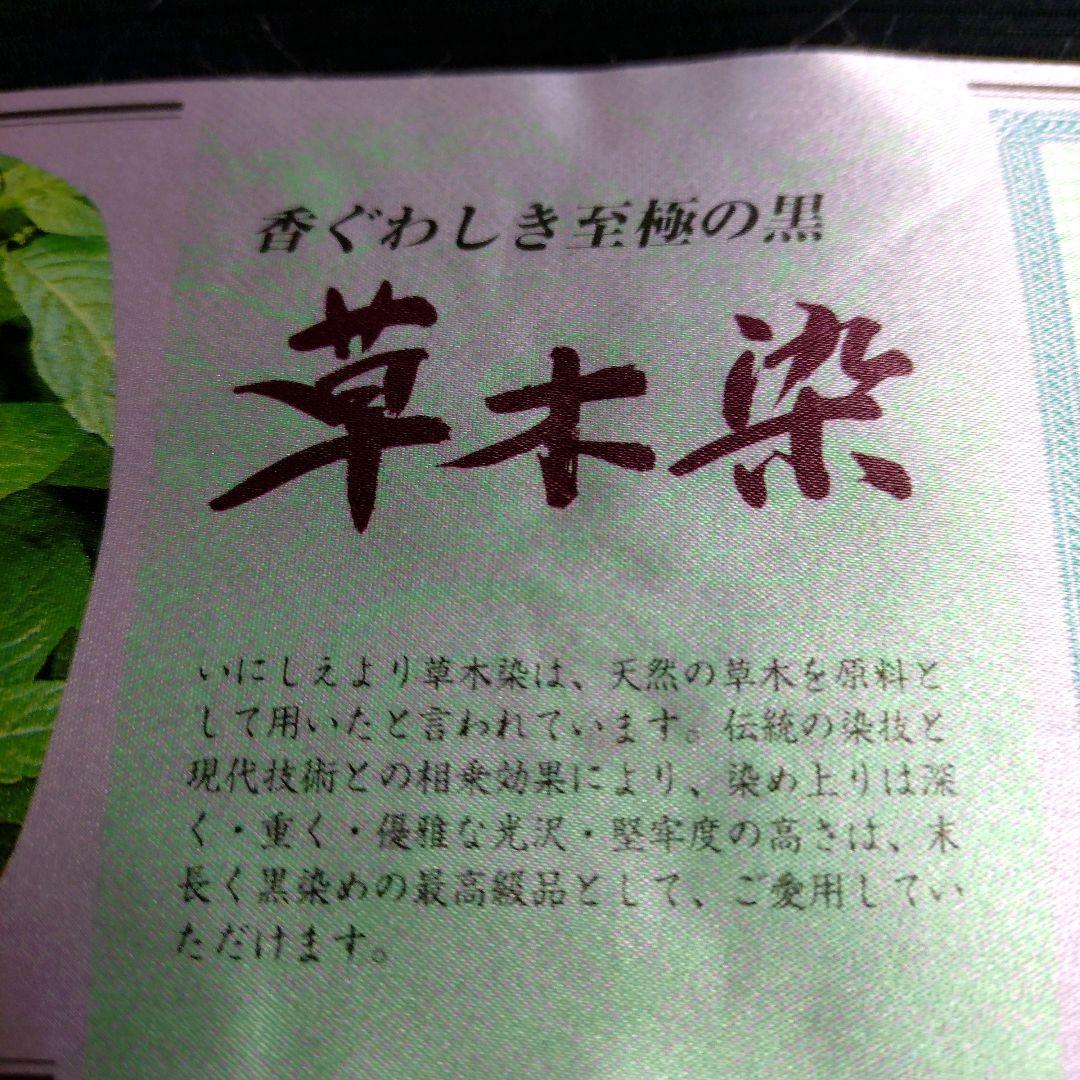 香ぐわしき至極の黒
草木染
いにしえより草木染は、天然の草木を原料と
して用いたと言われています。伝統の染技と
現代技術との相乗効果により、染め上りは深
く・重く・優雅な光沢・堅牢度の高さは、末
長く黒染めの最高級品として、ご愛用してい
ただけます。